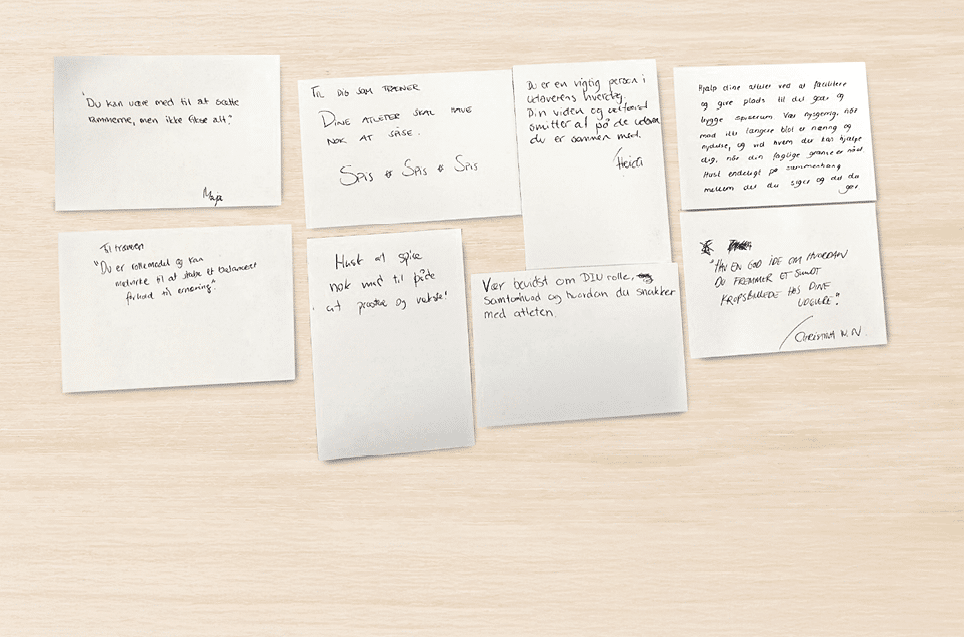 "Du kan være med til at sætte
rammerne, men ikke fikse alt."
Maja
TIL DIG SOM TRÆNER
DINE ATLETER SKAL HAVE
NOK AT SPISE.
SPIS & SPIS & SPIS
Du er en vigtig person i
udøverens hverdag.
Din viden og
smitter af på de udøvere
du er sammen med.
Heidi
Hjælp dine atleter ved at facilitere
og give plads til det gør og
trygge spiserum. Vær nysgerrig, når
mad ikke længere blot er næring og
nydelse, og vid hvem der kan hjælpe
dig, når din faglige grænse er nået.
Husk endeligt på sammenhæng
mellem det du siger og det du
gør.
Til træneren
"Du er rollemodel og kan
medvirke til at skabe et balanceret
forhold til ernæring."
Husk at spise
nok mad til både
at præstere og vokse!
Vær bevidst om DIN rolle,
samtomhed og hvordan du snakker
med atleten.
"HAV EN GOD IDE OM HVORDAN
DU FREMMER ET SUNDT
KROPSBILLEDE HOS DINE
UDØVERE."
CHRISTINA N.N.